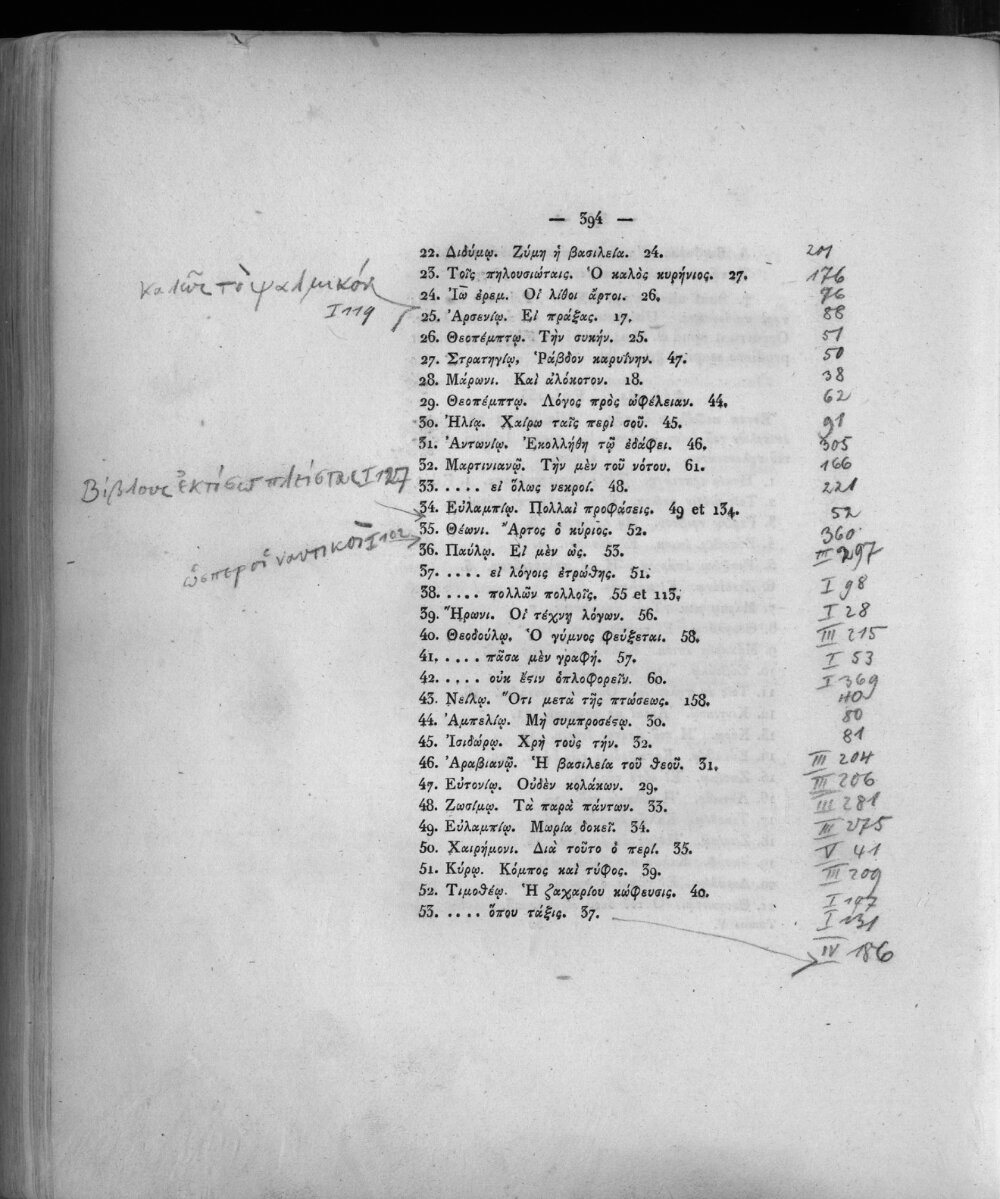 — 394 —
22. Διδύμῳ. Ζύμη ἡ βασιλεία. 24. 201
23. Τοῖς πηλουσιώταις. Ὁ καλὸς κυρήνιος. 27. 176
καλῶς τὸ ψαλμικόν
24. Ἰῶ ἐρεμ. Οἱ λίθοι ἄρτοι. 26. 96
I 119
25. Ἀρσενίῳ. Εἰ πράξας. 17. 88
26. Θεοπέμπτῳ. Τὴν συκήν. 25. 51
27. Στρατηγίῳ, Ῥάβδον καρυΐνην. 47. 50
28. Μάρωνι. Καὶ ἀλόκοτον. 18. 38
29. Θεοπέμπτῳ. Λόγος πρὸς ὠφέλειαν. 44. 62
30. Ἠλίᾳ. Χαίρω ταῖς περὶ σοῦ. 45. 91
31. Ἀντωνίῳ. Ἐκολλήθη τῷ ἐδάφει. 46. 305
32. Μαρτινιανῷ. Τὴν μὲν τοῦ νότου. 61. 166
Βίβλους ἐκτήσω πλείστας I 127
33. .... εἰ ὅλως νεκροί. 48. 221
34. Εὐλαμπίῳ. Πολλαὶ προφάσεις. 49 et 134. 52
35. Θέωνι. Ἄρτος ὁ κύριος. 52. 360
ὥσπερ οἱ ναυτικοὶ I 102
36. Παύλῳ. Εἰ μὲν ὡς. 53. III 297
37. .... εἰ λόγοις ἐτρώθης. 51. I 98
38. .... πολλῶν πολλοῖς. 55 et 113. I 28
39. Ἥρωνι. Οἱ τέχνῃ λόγων. 56. III 215
40. Θεοδούλῳ. Ὁ γύμνος φεύξεται. 58. I 53
41. .... πᾶσα μὲν γραφή. 57. I 369
42. .... οὐκ ἔστιν ὁπλοφορεῖν. 60.
43. Νείλῳ. Ὅτι μετὰ τῆς πτώσεως. 158. 80
44. Ἀμπελίῳ. Μὴ συμπροσέστω. 30. 81
45. Ἰσιδώρῳ. Χρὴ τοὺς τήν. 32. III 204
46. Ἀραβιανῷ. Ἡ βασιλεία τοῦ θεοῦ. 31. III 206
47. Εὐτονίῳ. Οὐδὲν κολάκων. 29. III 281
48. Ζωσίμῳ. Τὰ παρὰ πάντων. 33. III 275
49. Εὐλαμπίῳ. Μωρία δοκεῖ. 34. V 41
50. Χαιρήμονι. Διὰ τοῦτο ὁ περί. 35. III 209
51. Κύρῳ. Κόμπος καὶ τύφος. 39.
52. Τιμοθέῳ. Ἡ ζαχαρίου κώφευσις. 40. I 131
53. .... ὅπου τάξις. 37. IV 186